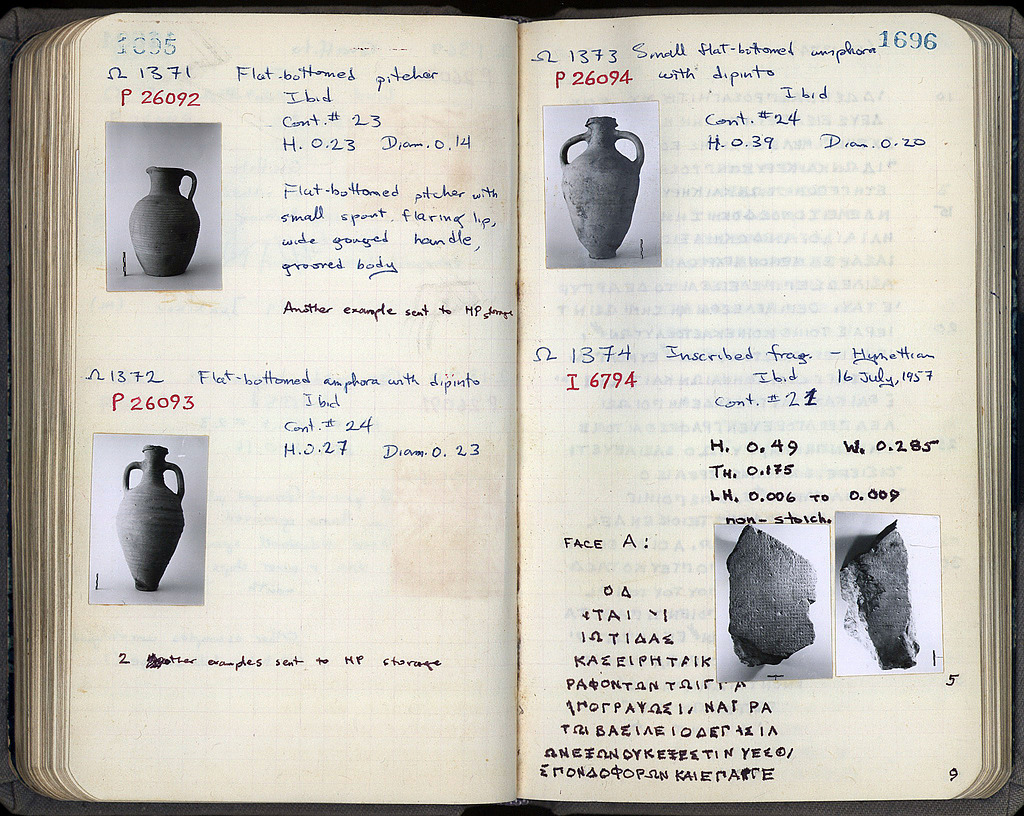 1695
Ω 1371 Flat-bottomed pitcher
P 26092 Ibid
Cont. # 23
H. 0.23 Diam. 0.14
Flat-bottomed pitcher with
small spout, flaring lip,
wide gouged handle,
grooved body
Another example sent to HP storage
Ω 1372 Flat-bottomed amphora with dipinto
P 26093 Ibid
Cont. # 24
H. 0.27 Diam. 0.23
2 other examples sent to HP storage
1696
Ω 1373 Small flat-bottomed amphora
P 26094 with dipinto
Ibid
Cont. # 24
H. 0.39 Diam. 0.20
Ω 1374 Inscribed frag. – Hymettian
I 6794 Ibid 16 July, 1957
Cont. # 21
H. 0.49 W. 0.285
TH. 0.175
LH. 0.006 TO 0.009
non-stoich.
FACE A:
ΟΔ
ΤΑΙ
ΙΩΤΙΔΑΣ
ΚΑΣΕΙΡΗΤΑΙΚ
ΡΑΦΟΝΤΩΝΤΩΙΓΓΡΑ 5
ΑΠΟΓΡΑΨΩΣΙ ΝΑΓΡΑ
ΤΩΙΒΑΣΙΛΕΙΟΔΕΓΑΣΙΛ
ΩΝΕΞΩΝΟΥΚΕΞΕΣΤΙΝ
ΣΠΟΝΔΟΦΟΡΩΝΚΑΙΕΠΑΓΓΕ 9